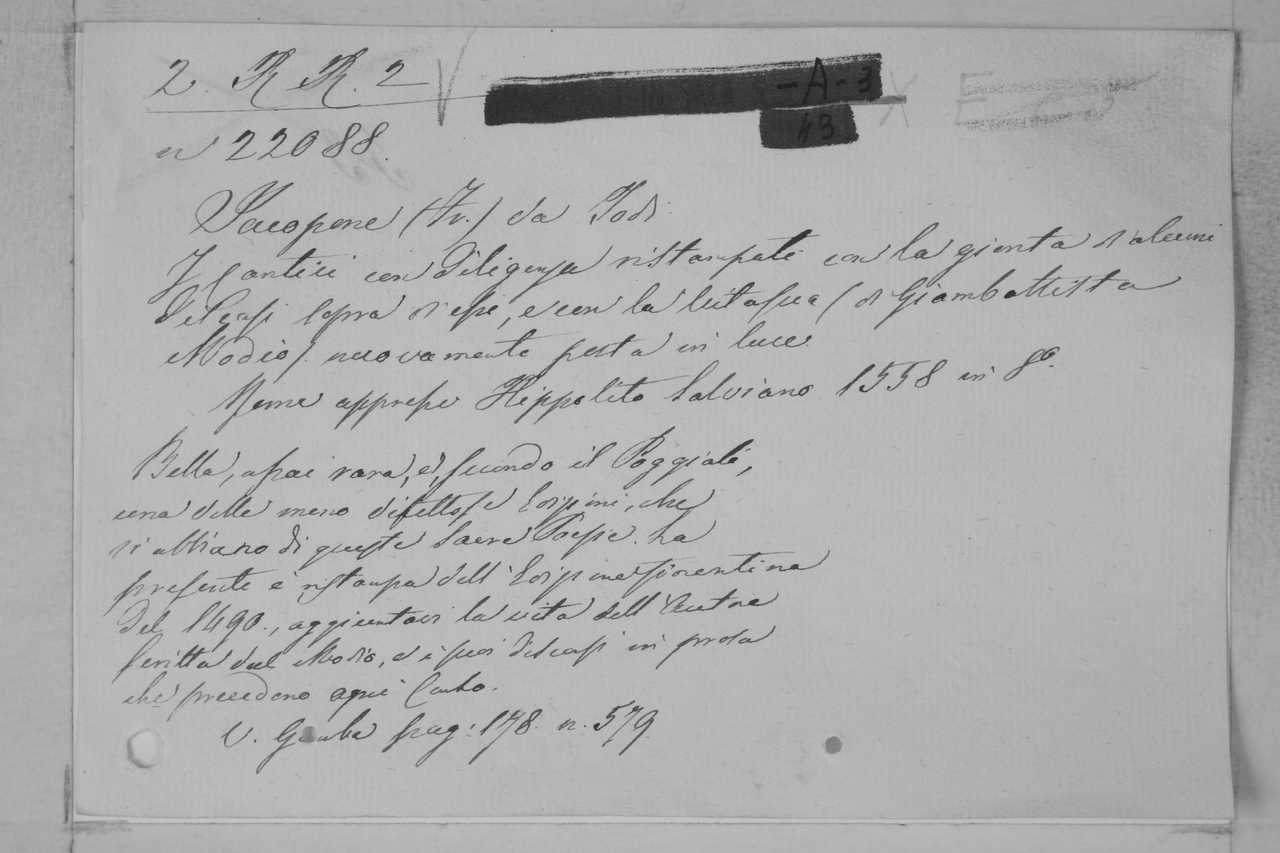 2. R R. 2 V -A-3 X E
43
n 22088.
Jacopone (Fr.) da Todi
I Cantici con diligenza ristampati con la gionta d'alcuni
discorsi sopra di essi, e con la vita sua (di Giambattista
Modio) nuovamente posta in luce
Roma appresso Hippolito Salviano 1558 in 8º.
Bella, assai rara, e, secondo il Poggiali,
una delle meno difettose Edizioni, che
si abbiano di queste Sacre Poesie. La
presente è ristampa dell'Edizione fiorentina
del 1490., aggiuntavi la vita dell'Autore
scritta dal Modio, e i suoi discorsi in prosa
che precedono ogni Canto.
V. Gamba pag: 178. n. 579.